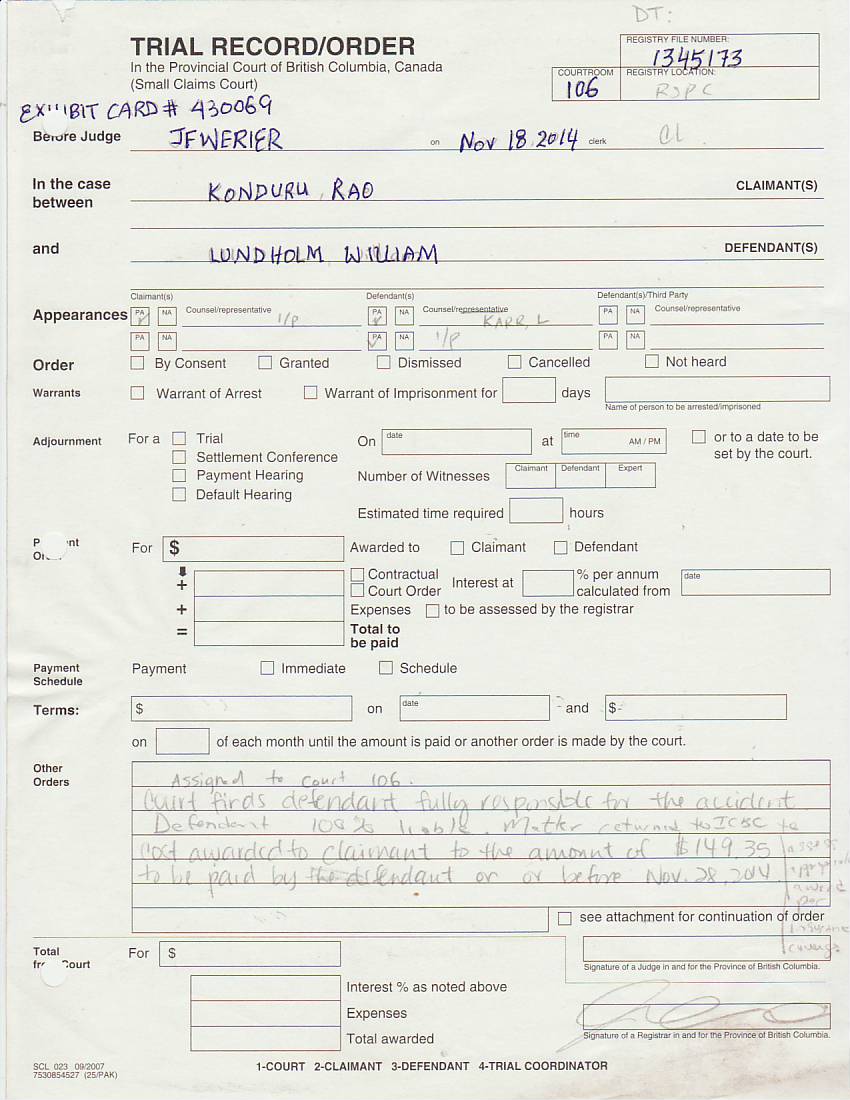 DT:
TRIAL RECORD/ORDER
In the Provincial Court of British Columbia, Canada
(Small Claims Court)
REGISTRY FILE NUMBER:
1345173
COURTROOM
106
REGISTRY LOCATION:
RSPC
EXHIBIT CARD # 430069
Before Judge JFWERIER on Nov 18 2014 clerk CL
In the case between KONDURU, RAO CLAIMANT(S)
and LUNDHOLM WILLIAM DEFENDANT(S)
Claimant(s) Defendant(s) Defendant(s)/Third Party
Appearances PA NA Counsel/representative I/P PA NA Counsel/representative KARR, L PA NA Counsel/representative
PA NA PA NA I/P PA NA
Order By Consent Granted Dismissed Cancelled Not heard
Warrants Warrant of Arrest Warrant of Imprisonment for days
Name of person to be arrested/imprisoned
Adjournment For a Trial On date at time AM / PM or to a date to be set by the court.
Settlement Conference
Payment Hearing Number of Witnesses Claimant Defendant Expert
Default Hearing
Estimated time required hours
For $ Awarded to Claimant Defendant
+ Contractual Court Order Interest at % per annum calculated from date
+ Expenses to be assessed by the registrar
= Total to be paid
Payment Schedule Payment Immediate Schedule
Terms: $ on date and $
on of each month until the amount is paid or another order is made by the court.
Other Orders
Assigned to court 106.
Court finds defendant fully responsible for the accident.
Defendant 100% liable. Matter returned to ICBC to
assess appropriate award per insurance coverage
Cost awarded to claimant to the amount of $149.35
to be paid by the defendant on or before Nov. 28, 2014
see attachment for continuation of order
Total Court For $
Signature of a Judge in and for the Province of British Columbia.
Interest % as noted above
Expenses
Total awarded
Signature of a Registrar in and for the Province of British Columbia.
SCL 023 09/2007
7530854527 (25/PAK)
1-COURT 2-CLAIMANT 3-DEFENDANT 4-TRIAL COORDINATOR